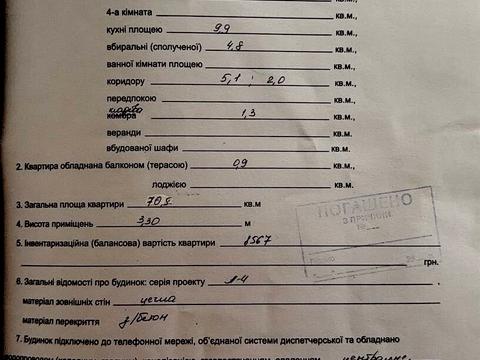 4-а кімната кв.м.,
кухні площею 9,9 кв.м.,
вбиральні (сполученої) 4,8 кв.м.,
ванної кімнати площею кв.м.,
коридору 5,1 ; 2,0 кв.м.,
передпокою кв.м.,
комора 1,3 кв.м.,
веранди кв.м.,
вбудованої шафи кв.м.
2. Квартира обладнана балконом (терасою) 0,9 кв.м.,
лоджією кв.м.
3. Загальна площа квартири 70,5 кв.м
4. Висота приміщень 3,30 м
5. Інвентаризаційна (балансова) вартість квартири 8567
грн.
ПОГАШЕНО
З ПРИЧИНИ
№
6. Загальні відомості про будинок: серія проекту
матеріал зовнішніх стін цегла
матеріал перекриття з/бетон
7. Будинок підключено до телефонної мережі, об'єднаної системи диспетчерської та обладнано